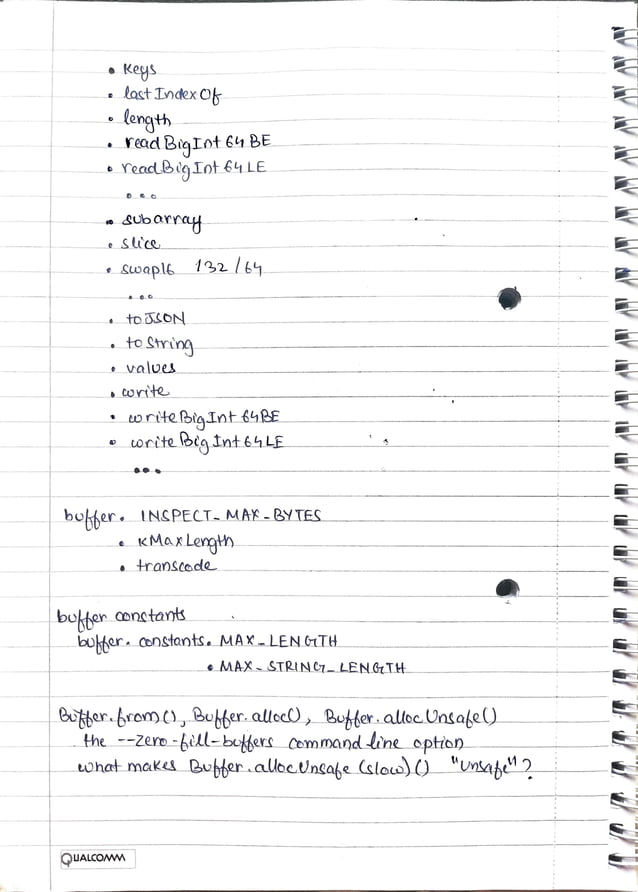 • Keys
• lastIndexOf
• length
• readBigInt64BE
• readBigInt64LE
...
• subarray
• slice
• swap16 132/64
...
• toJSON
• toString
• values
• write
• writeBigInt64BE
• writeBigInt64LE
...
buffer. INSPECT_MAX_BYTES
• kMaxLength
• transcode
buffer constants
buffer. constants. MAX_LENGTH
• MAX_STRING_LENGTH
Buffer.from(), Buffer.alloc(), Buffer.allocUnsafe()
the --zero-fill-buffers command line option
what makes Buffer.allocUnsafe(slow)() "Unsafe"?
QUALCOMM